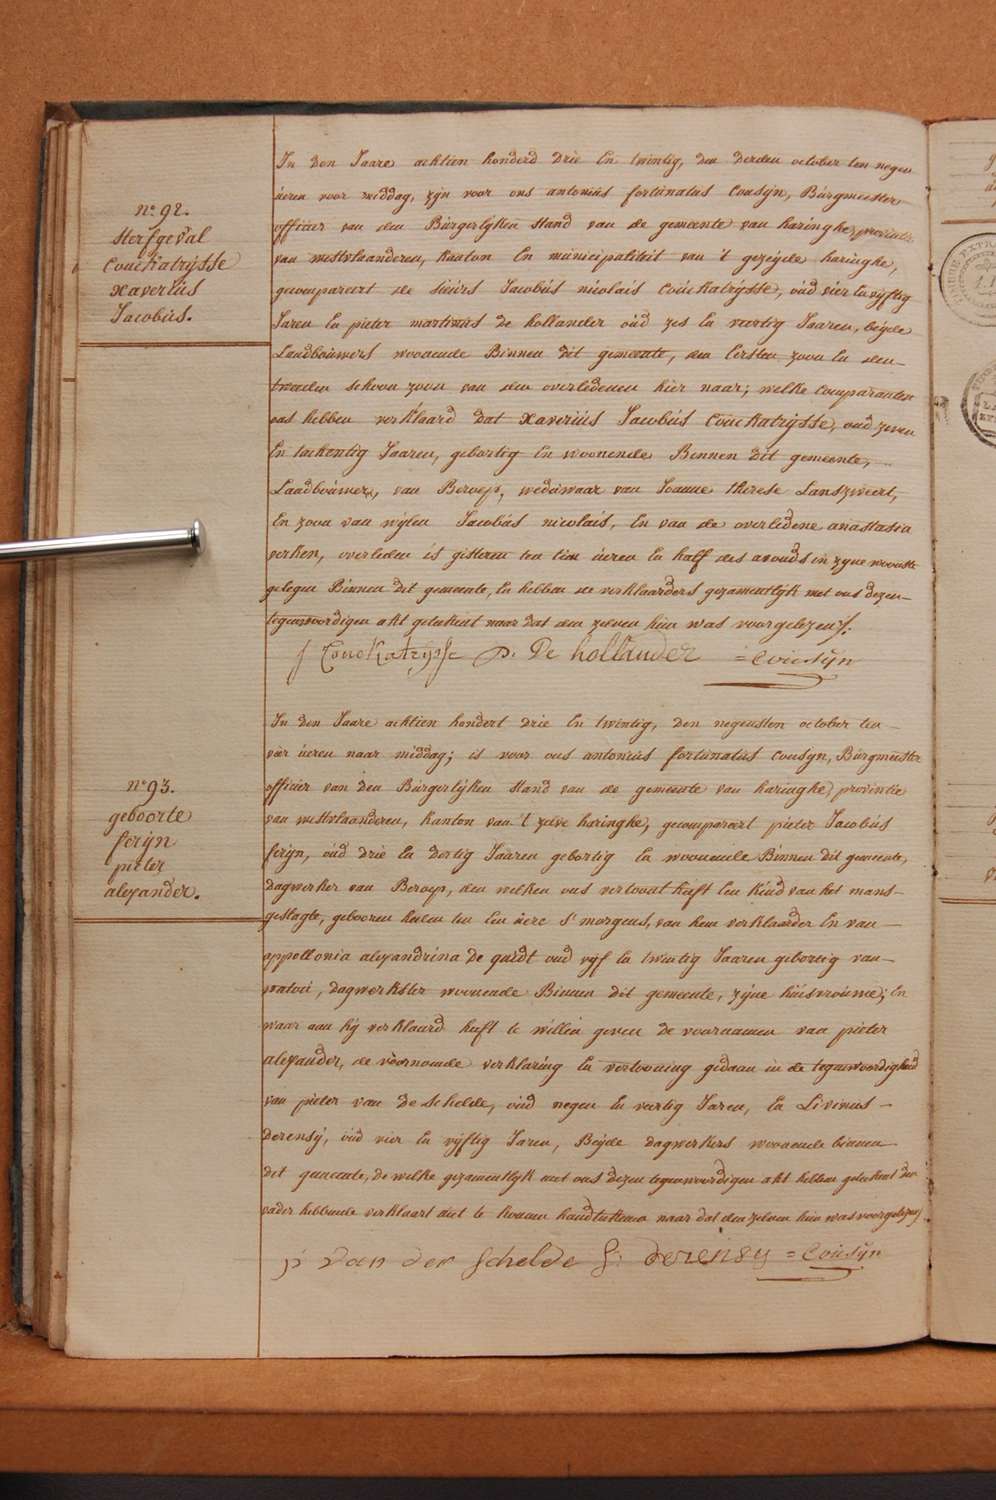 n° 92.
sterfgeval
Couckatrijsse
xaverius
Jacobus.
In den Jaare achtien honderd drie En twintig, den derden october ten negen
üeren voor middag, zijn voor ons antonius fortunatus Cousyn, Burgmeester
officier van den Burgerlyken stand van de gemeente van haringhe provintie
van westvlaanderen, kanton En municipaliteit van 't gezeijde haringhe,
gecompareert de sieurs Jacobus nicolais Couckatrijsse, oud vier En vijftig
Jaren En pieter martinus de hollander oud zes En veertig Jaaren, beijde
Landbouwers woonende Binnen dit gemeente, den Eersten zoon En den
tweeden schoon zoon van den overledenen hier naar; welke Comparanten
ons hebben verklaard dat xaverius Jacobus Couckatrijsse, oud zeven
En tachentig Jaaren, gebortig En woonende Binnen dit gemeente,
Landbouwer, van Beroep, weduwaar van Joanne therese Lanszweert,
En zoon van wylen Jacobus nicolais, En van de overledene anastasia
verken, overleden is gisteren ten tien üeren En half des avonds in zyne wooniste
gelegen Binnen dit gemeente, En hebben de verklaarders gezamentlijk met ons dezen
tegenwoordigen akt geteekent naar dat den zelven hun was voorgelezen /:
J Couckatrijsse p. De hollander = Cousyn
n° 93.
geboorte
ferijn
pieter
alexander.
In den Jaare achtien hondert drie En twintig, den negensten october ten
vier üeren naar middag; is voor ons antonius fortunatus Cousyn, Burgmeester
officier van den Burgerlyken stand van de gemeente van haringhe, provintie
van westvlaanderen, kanton van 't zelve haringhe, gecompareert pieter Jacobus
ferijn, oud drie En dertig Jaaren gebortig En woonende Binnen dit gemeente,
dagwerker van Beroep, den welken ons vertoont heeft Een kind van het mans
geslagte, gebooren heden ten Een üere S' morgens, van hem verklaarder En van
appollonia alexandrina de quidt oud vyf En twintig Jaaren gebortig van
watou, dagwerkster woonende Binnen dit gemeente, zijne huisvrouwe; En
waar aan hij verklaard heeft te willen geven de voornamen van pieter
alexander, de voornoemde verklaring En vertooning gedaan in de tegenwoordigheid
van pieter van de schelde, oud negen En veertig Jaren, En Livinus
derensy, oud vier En vyftig Jaren, Beijde dagwerkers woonende binnen
dit gemeente, de welke gezamentlyk met ons dezen tegenwoordigen akt hebben geteekent den
vader hebbende verklaart niet te konnen handteekenen naar dat den zelven hun was voorgelezen /.
p van der schelde L: derensy = Cousyn